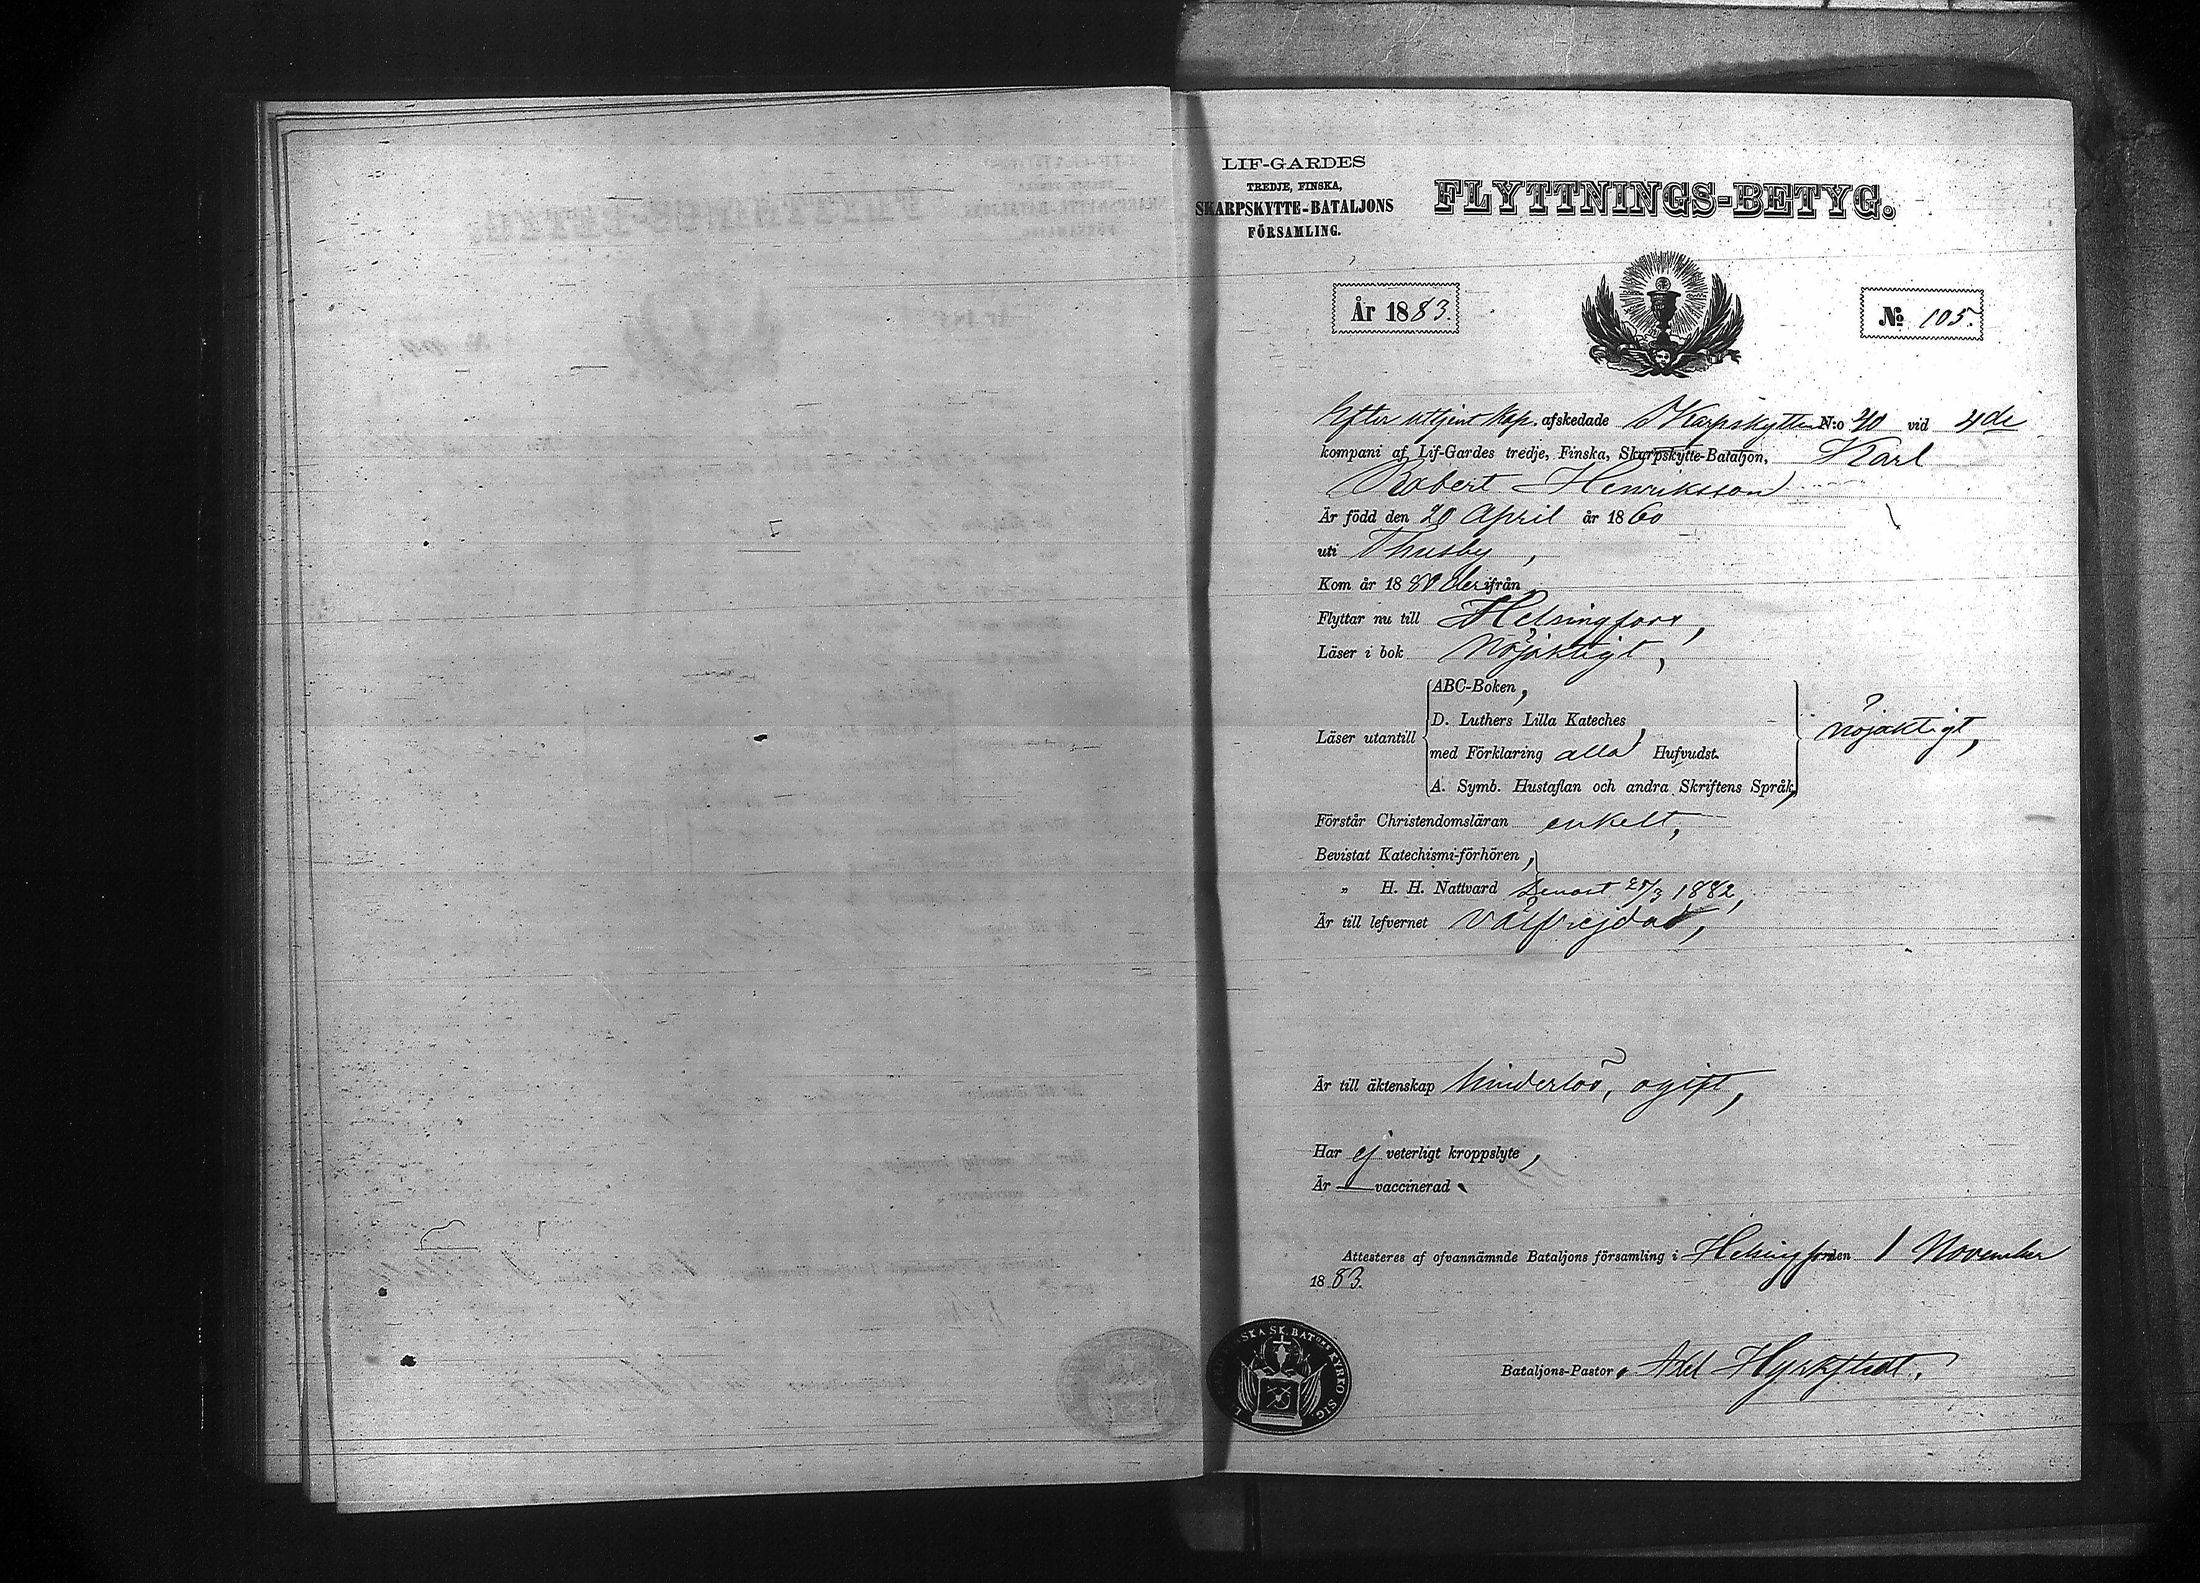 LIF-GARDES
TREDJE, FINSKA,
SKARPSKYTTE-BATALJONS
FÖRSAMLING.
FLYTTNINGS-BETYG.
År 1883.
No 105.
Efter uttjent kap. afskedade Skarpskytten N:o 40 vid 4de
kompani af Lif-Gardes tredje, Finska, Skarpskytte-Bataljon, Karl
Robert Henriksson
Är född den 20 April år 1860
uti Thusby,
Kom år 1880 ifrån
Flyttar nu till Helsingfors,
Läser i bok nöjaktigt,
Läser utantill
ABC-Boken,
D. Luthers Lilla Kateches
med Förklaring alla Hufvudst.
A. Symb. Hustaflan och andra Skriftens Språk,
nöjaktigt,
Förstår Christendomsläran enkelt,
Bevistat Katechismi-förhören,
„ H. H. Nattvard Senast 25/3 1882,
Är till lefvernet välfrejdad,
Är till äktenskap hinderlös, ogift,
Har ej veterligt kroppslyte,
Är — vaccinerad.
Attesteres af ofvannämnde Bataljons församling i Helsingfors den 1 November
1883.
Bataljons-Pastor, Axel Hyrkstedt.
FINSKA SK. BATONS KYRKO SIG.